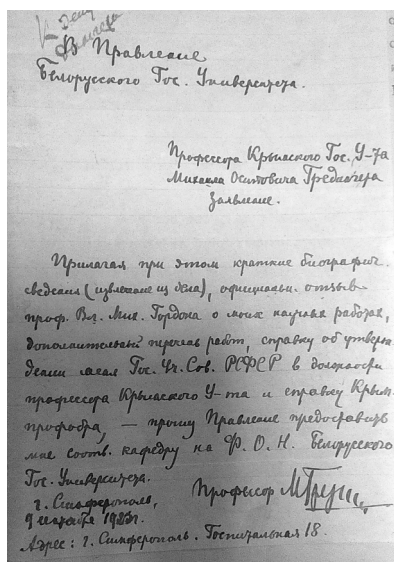 В Правление
Белорусского Гос. Университета.
Профессора Крымского Гос. У-та
Михаила Осиповича Гредингера
Заявление.
Прилагая при этом краткие биографич.
сведения (извлечение из дела), официальн. отзыв
проф. Вл. Мих. Гордона о моих научных работах,
дополнительный перечень работ, справку об утверж
дении меня Гос. Уч. Сов. РСФСР в должности
профессора Крымского У-та и справку Крым-
профобра, — прошу Правление предоставить
мне соотв. кафедру на Ф. О. Н. Белорусского
Гос. Университета.
Профессор
г. Симферополь,
9 1923 г.
Адрес: г. Симферополь. Госпитальная 18.